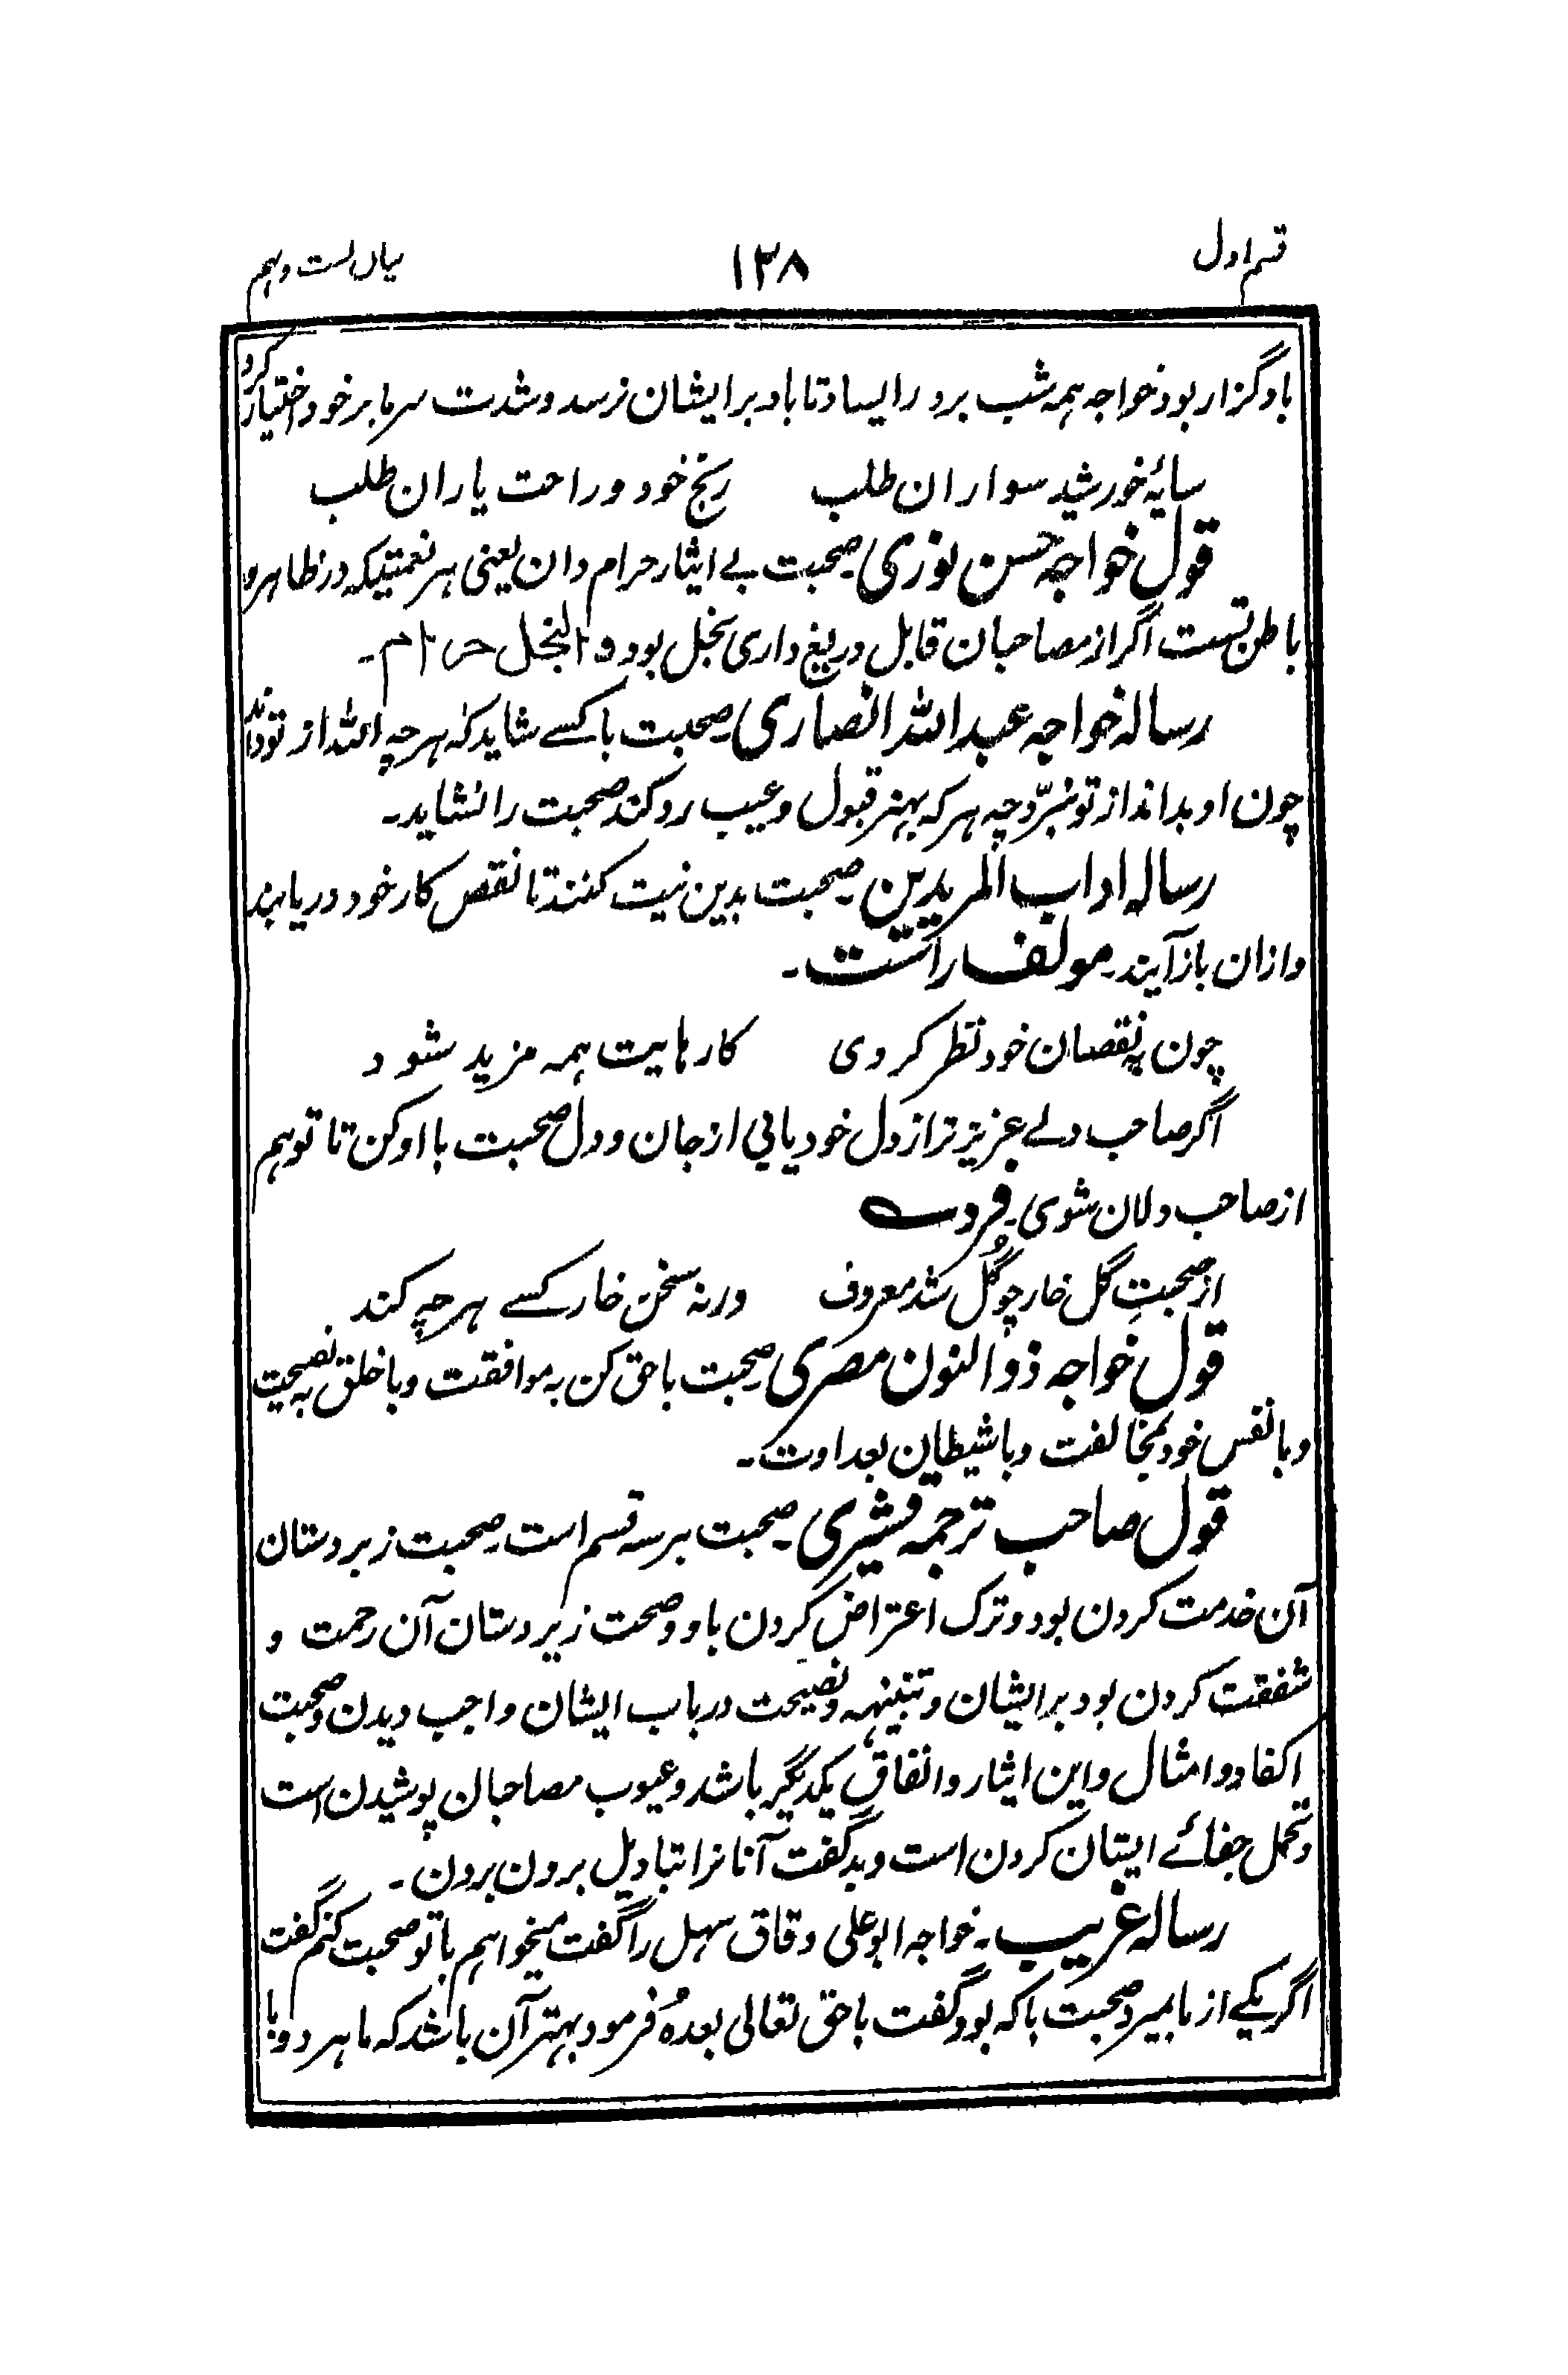 قسم اول ۱۲۸ بیان بست و نهم
باد گزار بود خواجه همه شب برد را ایستاد تا باد بر ایشان نرسد و شدت سرما بر خود اختیار کرد
سایۂ خورشید سواران طلب رنج خود و راحت یاران طلب
قول خواجه حسن نوری صحبت بے ایثار حرام دان یعنی هر نعمتیکه در ظاهر و
باطن تست اگر از مصاحبان قابل دریغ داری بخل بود و البخل حرام۔
رساله خواجه عبد الله انصاری صحبت با کسے شاید که هر چه الله از تو داند
چون او بداند از تو نبرّد چه هر که بهنر قبول و عیب رد کند صحبت را نشاید۔
رساله اداب المریدین صحبت بدین نیت کنند تا نقص کار خود دریابند
و ازان باز آیند۔ مولف راست۔
چون به نقصان خود نظر کردی کارهایت همه مزید شود
اگر صاحب دلے عزیز تر از دل خود یابی از جان و دل صحبت با او کن تا تو هم
از صاحب دلان شوی۔ فرد
از صحبتِ گل خار چو گُل شد معروف ورنه سخن خار کسے هر چه کند
قول خواجه ذوالنون مصری صحبت با حق کن به موافقت و با خلق به نصیحت
و با نفس خود بمخالفت و با شیطان بعداوت۔
قول صاحب ترجمه قشیری۔ صحبت بر سه قسم است۔ صحبت زبردستان
آن خدمت کردن بود و ترک اعتراض کردن باو و صحبت زیردستان آن رحمت و
شفقت کردن بود بر ایشان و تنبیهه و نصیحت در باب ایشان واجب دیدن و صحبت
اکفاد و امثال و این ایثار و انفاق یکدیگر باشد و عیوب مصاحبان پوشیدن است
و تحمل جفائے ایشان کردن است و بد گفت آنانرا بتاویل برون بردن۔
رساله غریب۔ خواجه ابو علی دقاق سهل را گفت میخواهم با تو صحبت کنم گفت
اگر یکے از ما بمیرد صحبت با که بود گفت با حق تعالی بعدهٗ فرمود بهتر آن باشد که ما هر دو با